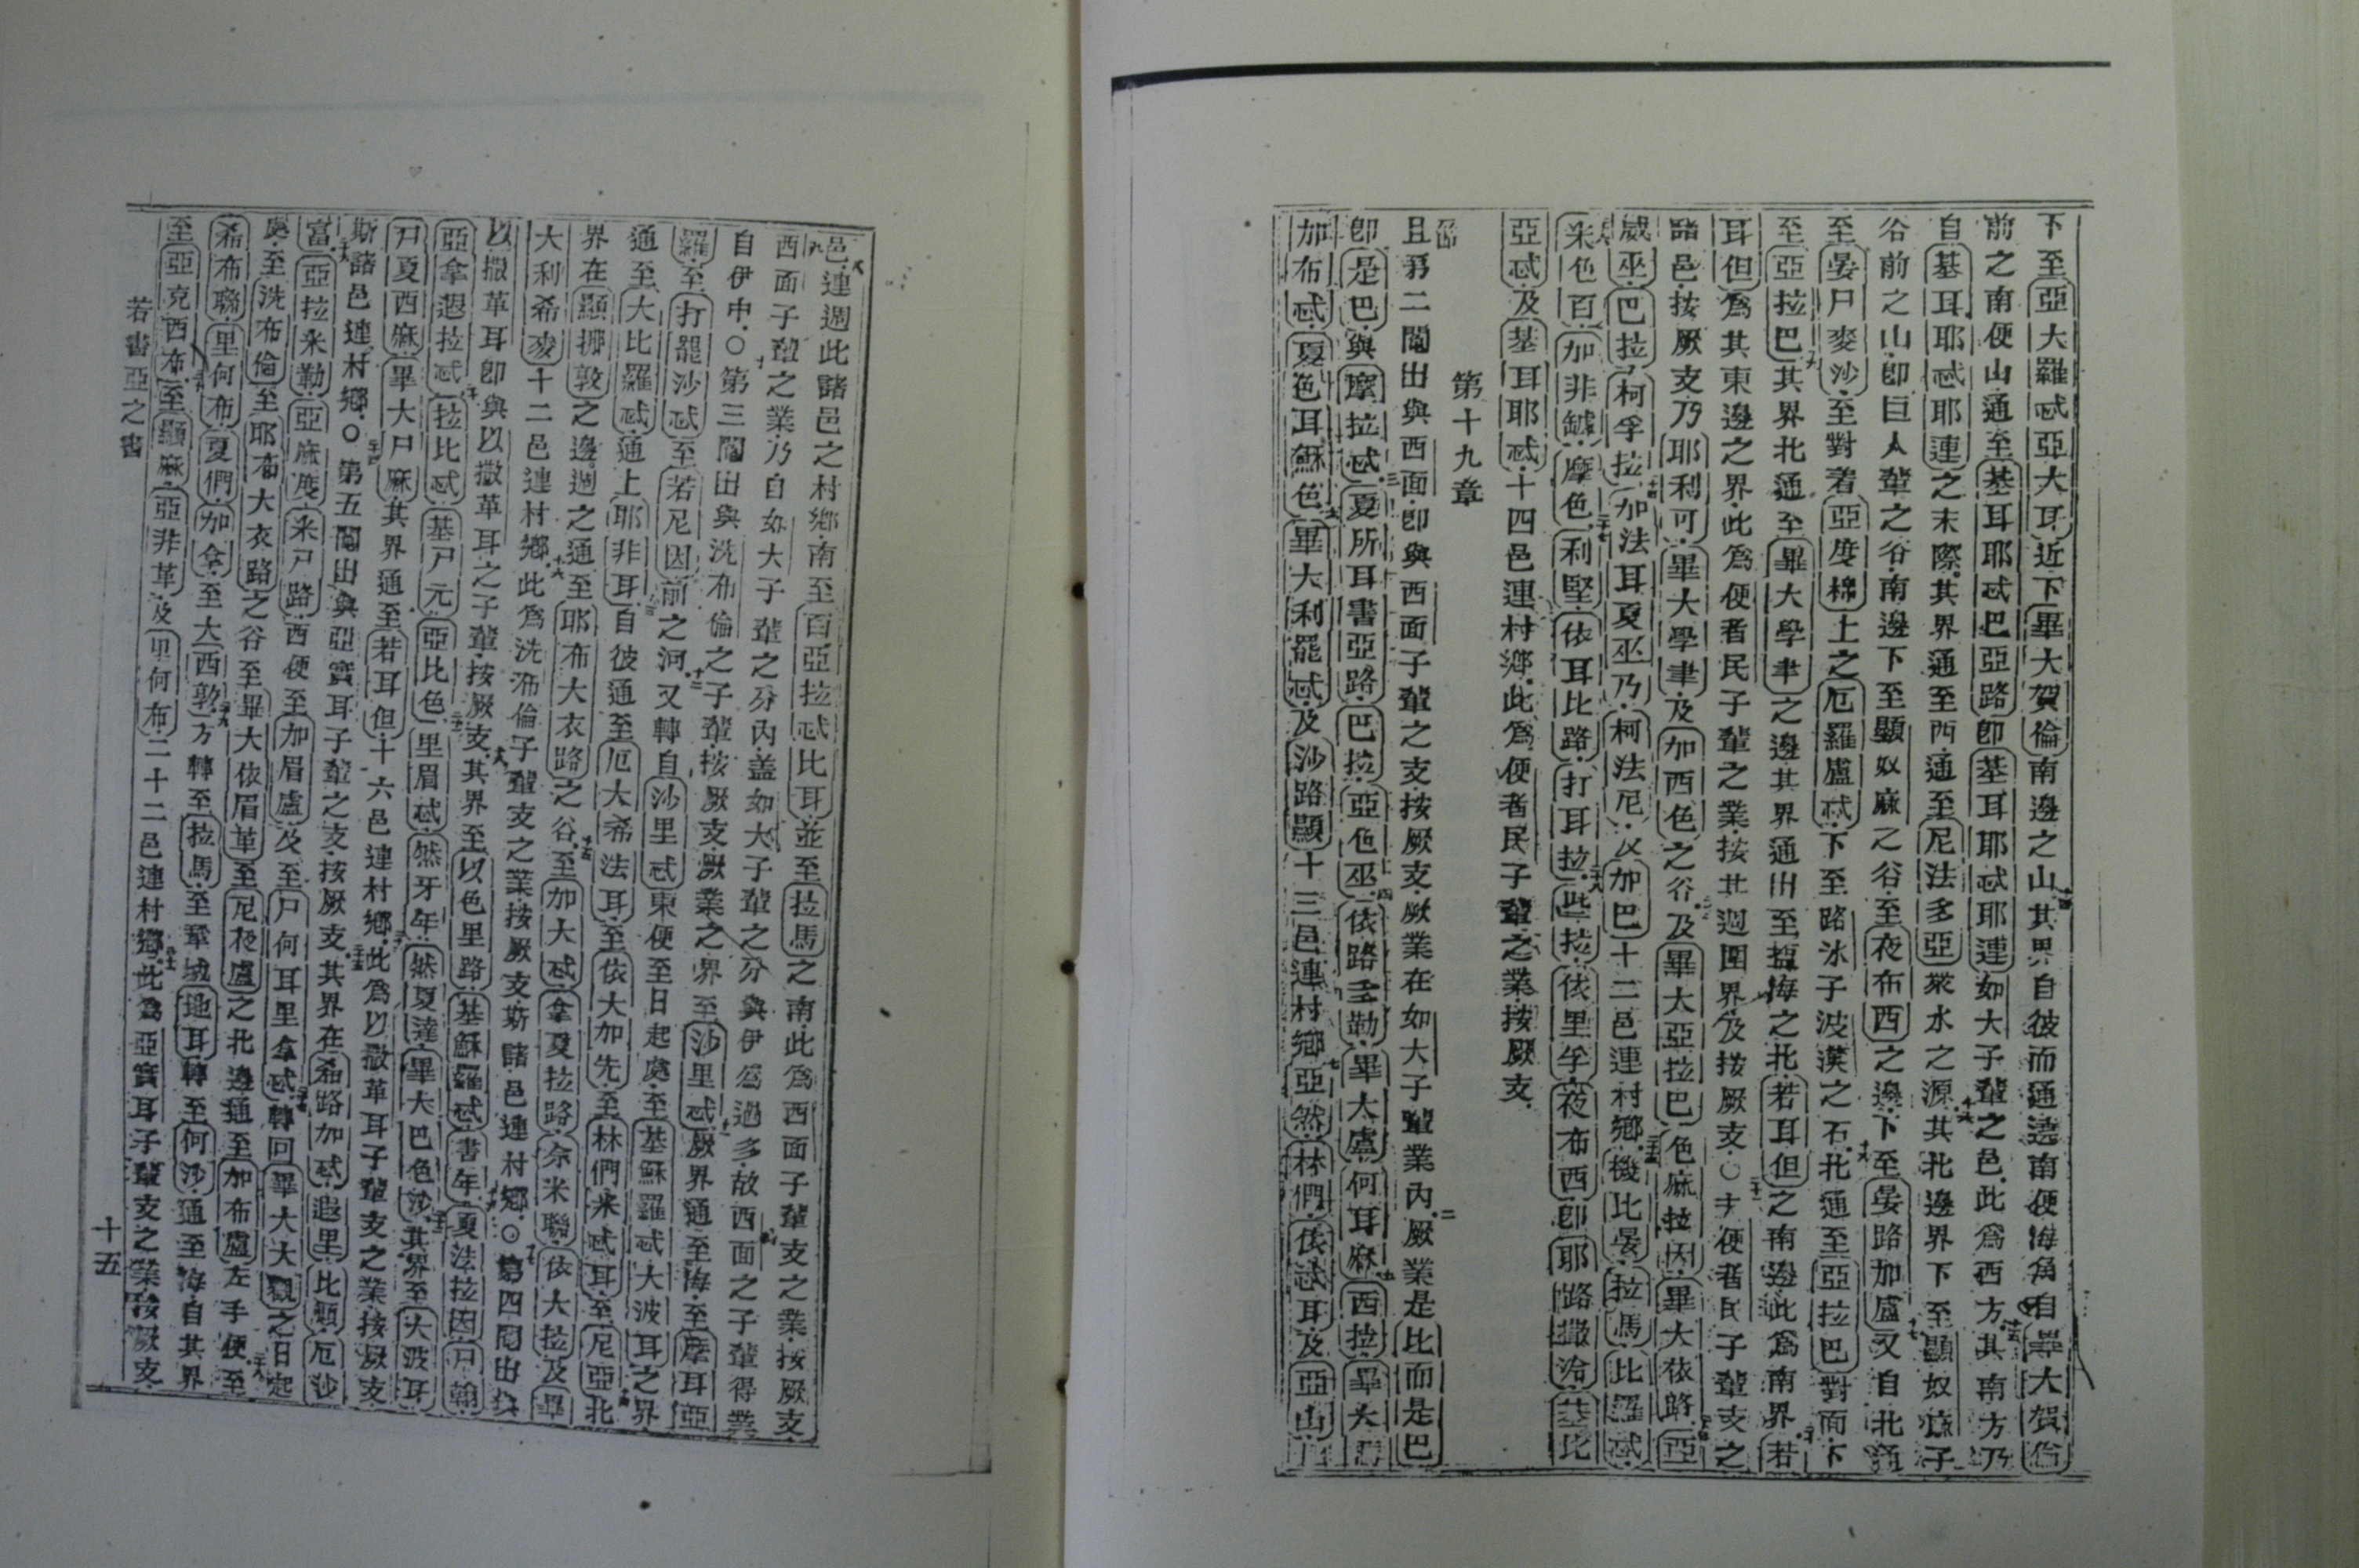 下至亞大羅忒亞大耳近下畢大賀倫南邊之山其界自彼而通遶南便海角自畢大賀倫
前之南便山通至基耳耶忒巴亞路即基耳耶忒耶連如大子輩之邑此爲西方其南方乃
自基耳耶忒耶連之末際其界通至西通至尼法多亞衆水之源其北邊界下至顯奴麻子
谷前之山即巨人輩之谷南邊下至顯奴麻之谷至夜布西之邊下至晏路加盧又自北通
至晏尸麥沙至對着亞度棉上之厄羅盧忒下至路氷子波漢之石北通至亞拉巴對面下
至亞拉巴其界北通至畢大學聿之邊其界通出至鹽海之北若耳但之南邊此爲南界若
耳但爲其東邊之界此爲便者民子輩之業按其週圍界及按厥支○夫便者民子輩支之
諸邑按厥支乃耶利可畢大學聿及加西色之谷及畢大亞拉巴色麻拉因畢大依路亞
威巫巴拉柯孚拉加法耳夏巫乃柯法尼及加巴十二邑連村鄉機比晏拉馬比羅忒
米色百加非鎼摩色利堅依耳比路打耳拉些拉依里孚夜布西即耶路撒冾基比
亞忒及基耳耶忒十四邑連村鄉此爲便者民子輩之業按厥支
第十九章
且第二鬮出與西面即與西面子輩之支按厥支厥業在如大子輩業內厥業是比而是巴
即是巴與摩拉忒夏所耳書亞路巴拉亞色巫依路多勒畢大盧何耳麻西拉畢大
加布忒夏色耳穌色畢大利罷忒及沙路顯十三邑連村鄉亞然林們依忒耳及亞山
邑連週此諸邑之村鄉南至百亞拉忒比耳並至拉馬之南此爲西面子輩支之業按厥支
西面子輩之業乃自如大子輩之分內盖如大子輩之分與伊爲過多故西面之子輩得業
自伊中○第三鬮出與洗布倫之子輩按厥支厥業之界至沙里忒厥界通至海至摩耳亞
羅至打罷沙忒至若尼因前之河又轉自沙里忒東便至日起處至基穌羅忒大波耳之界
通至大比羅忒通上耶非耳自彼通至厄大希法耳至依大加先至林們米忒耳至尼亞北
界在顯挪敦之邊週之通至耶布大衣路之谷至加大忒拿夏拉路佘米聯依大拉及畢
大利希麥十二邑連村鄉此爲洗布倫子輩支之業按厥支斯諸邑連村鄉○第四鬮出與
以撒革耳即與以撒革耳之子輩按厥支其界至以色里路基穌羅忒書年夏法拉因尸翰
亞拿遐拉忒拉比忒基尸元亞比色里眉忒然牙年然夏達畢大巴色沙其界至大波耳
尸夏西麻畢大尸麻其界通至若耳但十六邑連村鄉此爲以撒革耳子輩支之業按厥支
斯諸邑連村鄉○第五鬮出與亞實耳子輩之支按厥支其界在希路加忒遐里比顯厄沙
富亞拉米勒亞麻度米尸路西便至加眉盧及至尸何耳里拿忒轉回畢大大觀之日起
處至洗布倫至耶布大衣路之谷至畢大依眉革至尼衣盧之北邊通至加布盧左手便至
希布聯里何布夏們加拿至大西敦方轉至拉馬至鞏城地耳轉至何沙通至海自其界
至亞克西布至顯麻亞非革及里何布二十二邑連村鄉此爲亞實耳子輩支之業按厥支
若書亞之書
十五